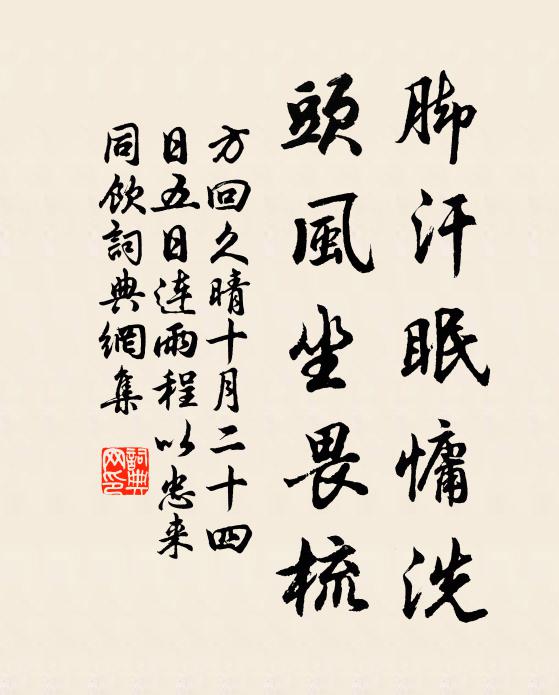 脚汗眠慵洗
頭風坐畏梳
方回久晴十月二十四
日五日連雨程以忠来
同飲詞典網集
詞典网印